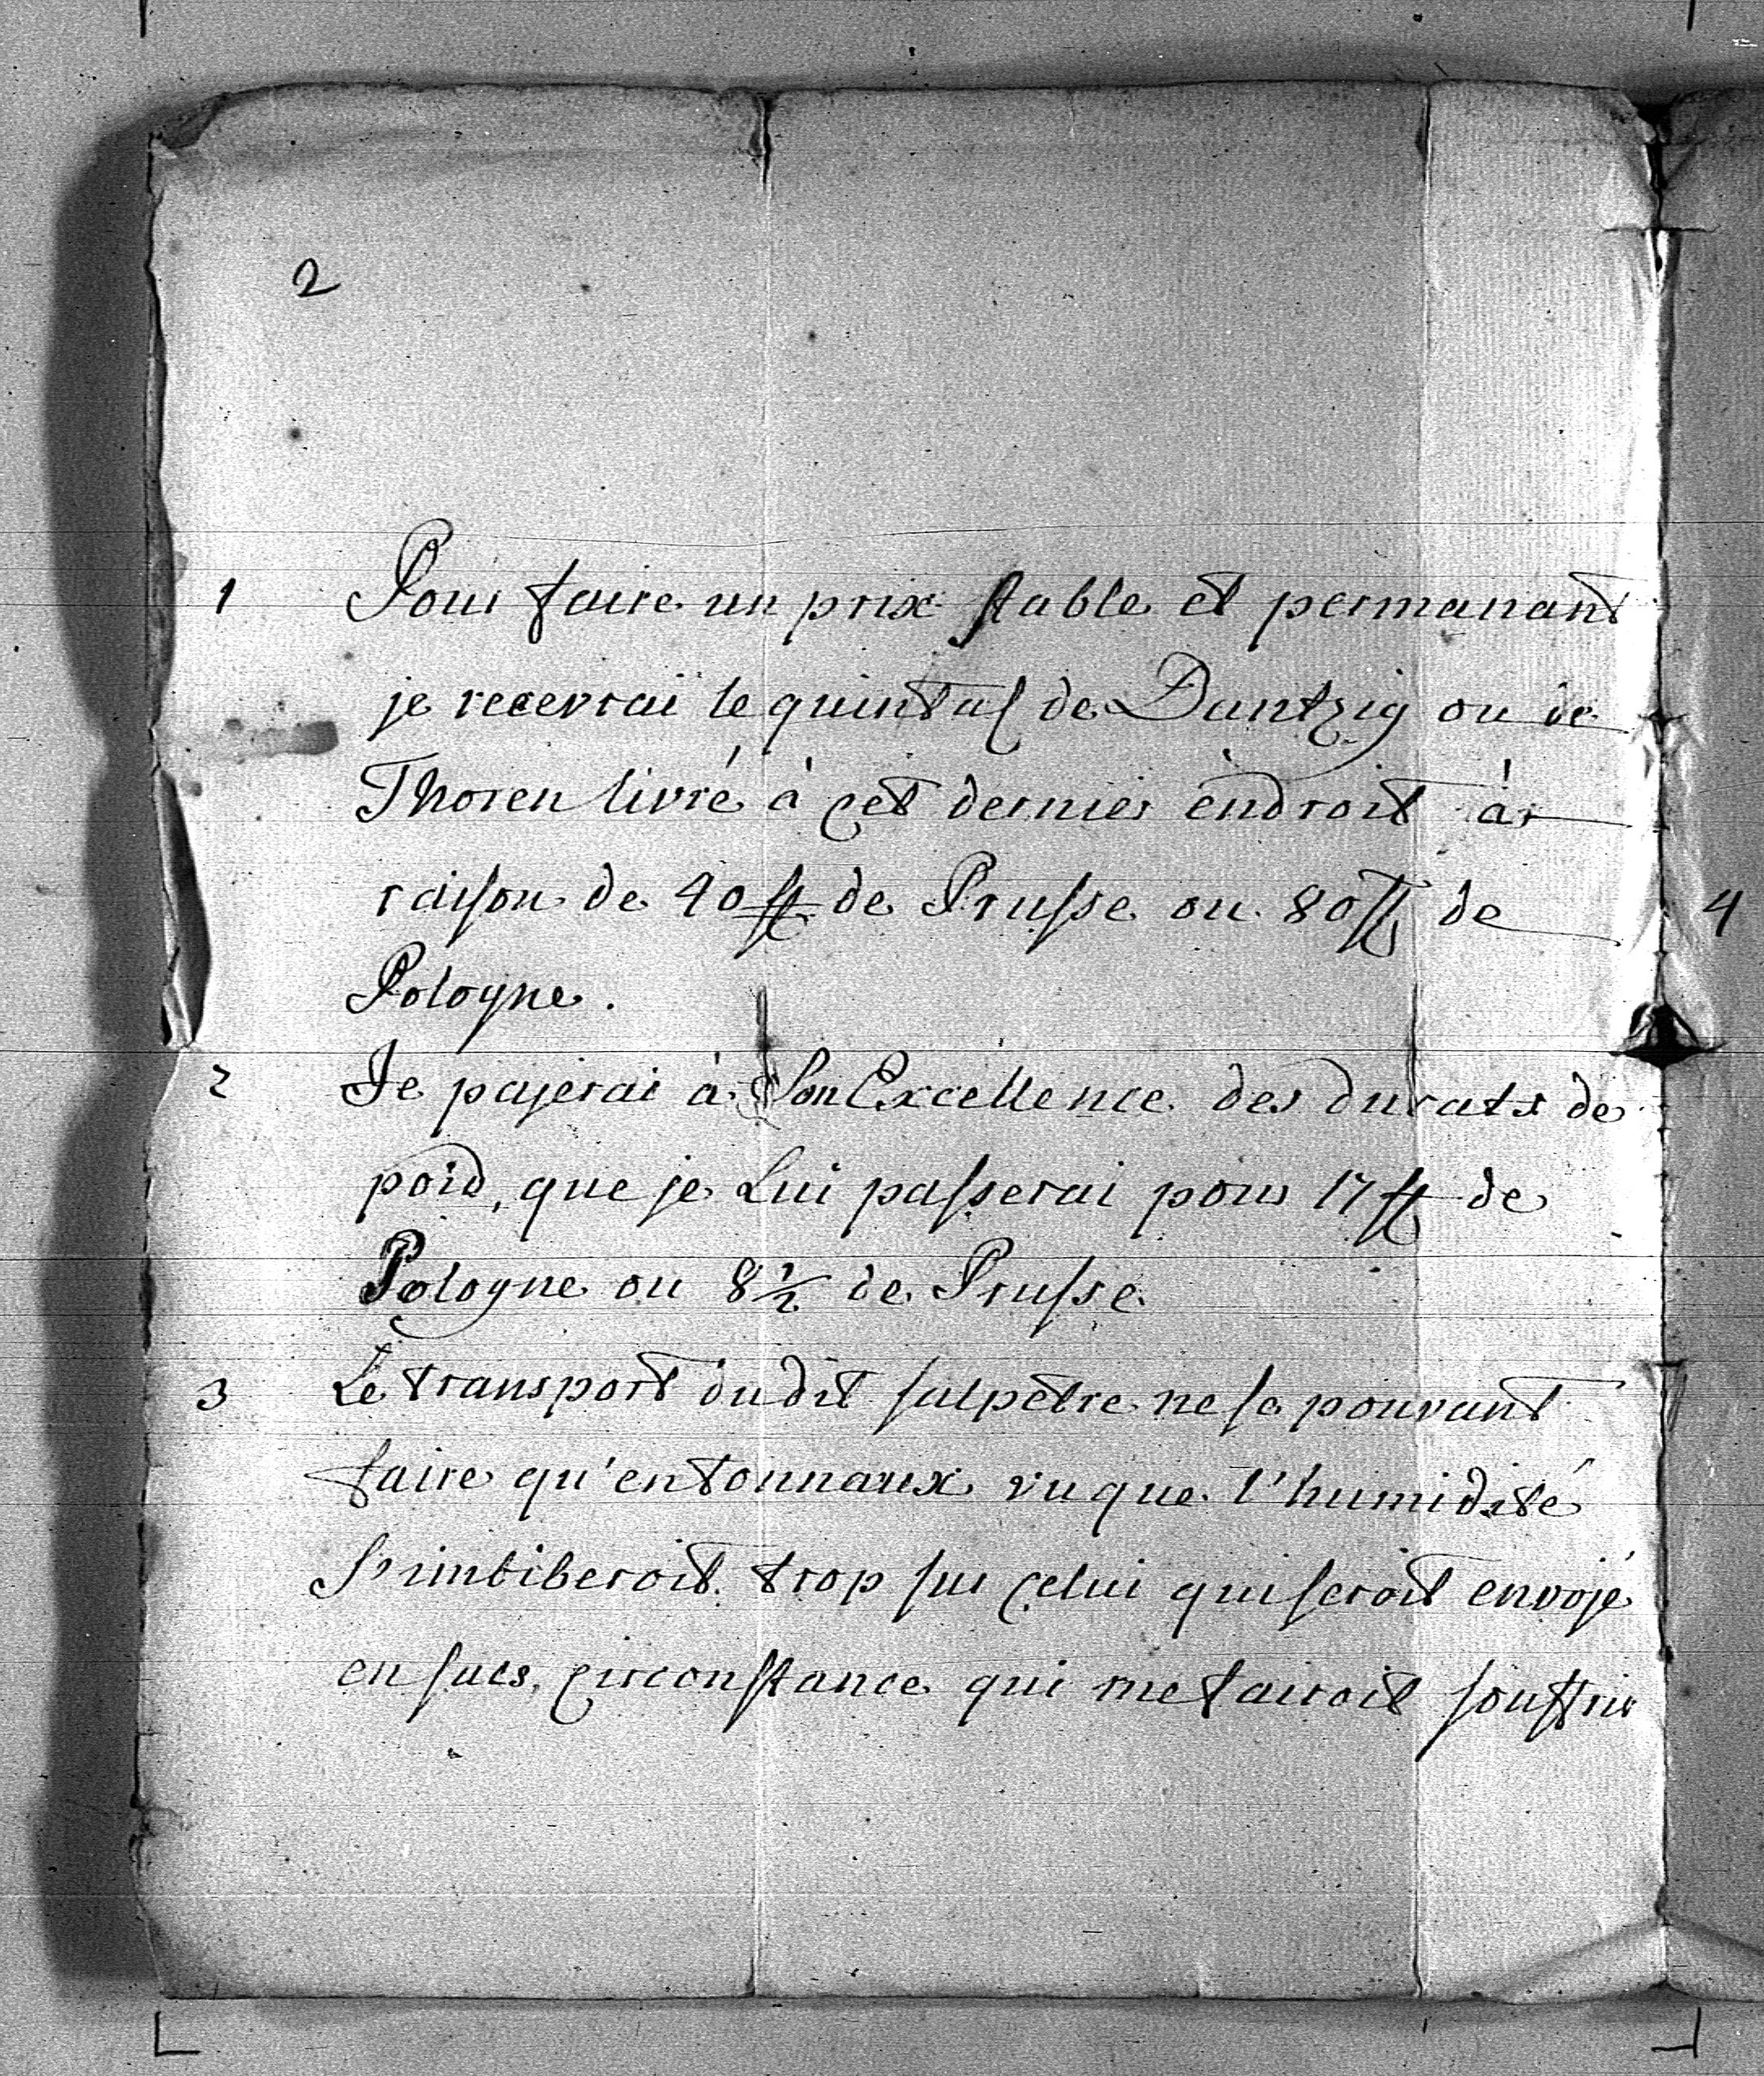 2
1 Pour faire un prix stable et permanant
je recevrai le quintal de Dantzig ou de
Thoren livré à cet dernier èndroit à
raison de 40 fl de Prusse ou 80 fl de
Pologne.
4
2 Je pajerai à Son Excellence des ducats de
poid, que je Lui passerai pour 17 fl de
Pologne ou 8 1/2 de Prusse
3 Le transport du dit salpêtre ne se pouvant
faire qu'en tonnaux vu que l'humidité
s'imbiberoit trop sur celui qui seroit envojé
en sacs, circonstance qui me fairoit souffrir